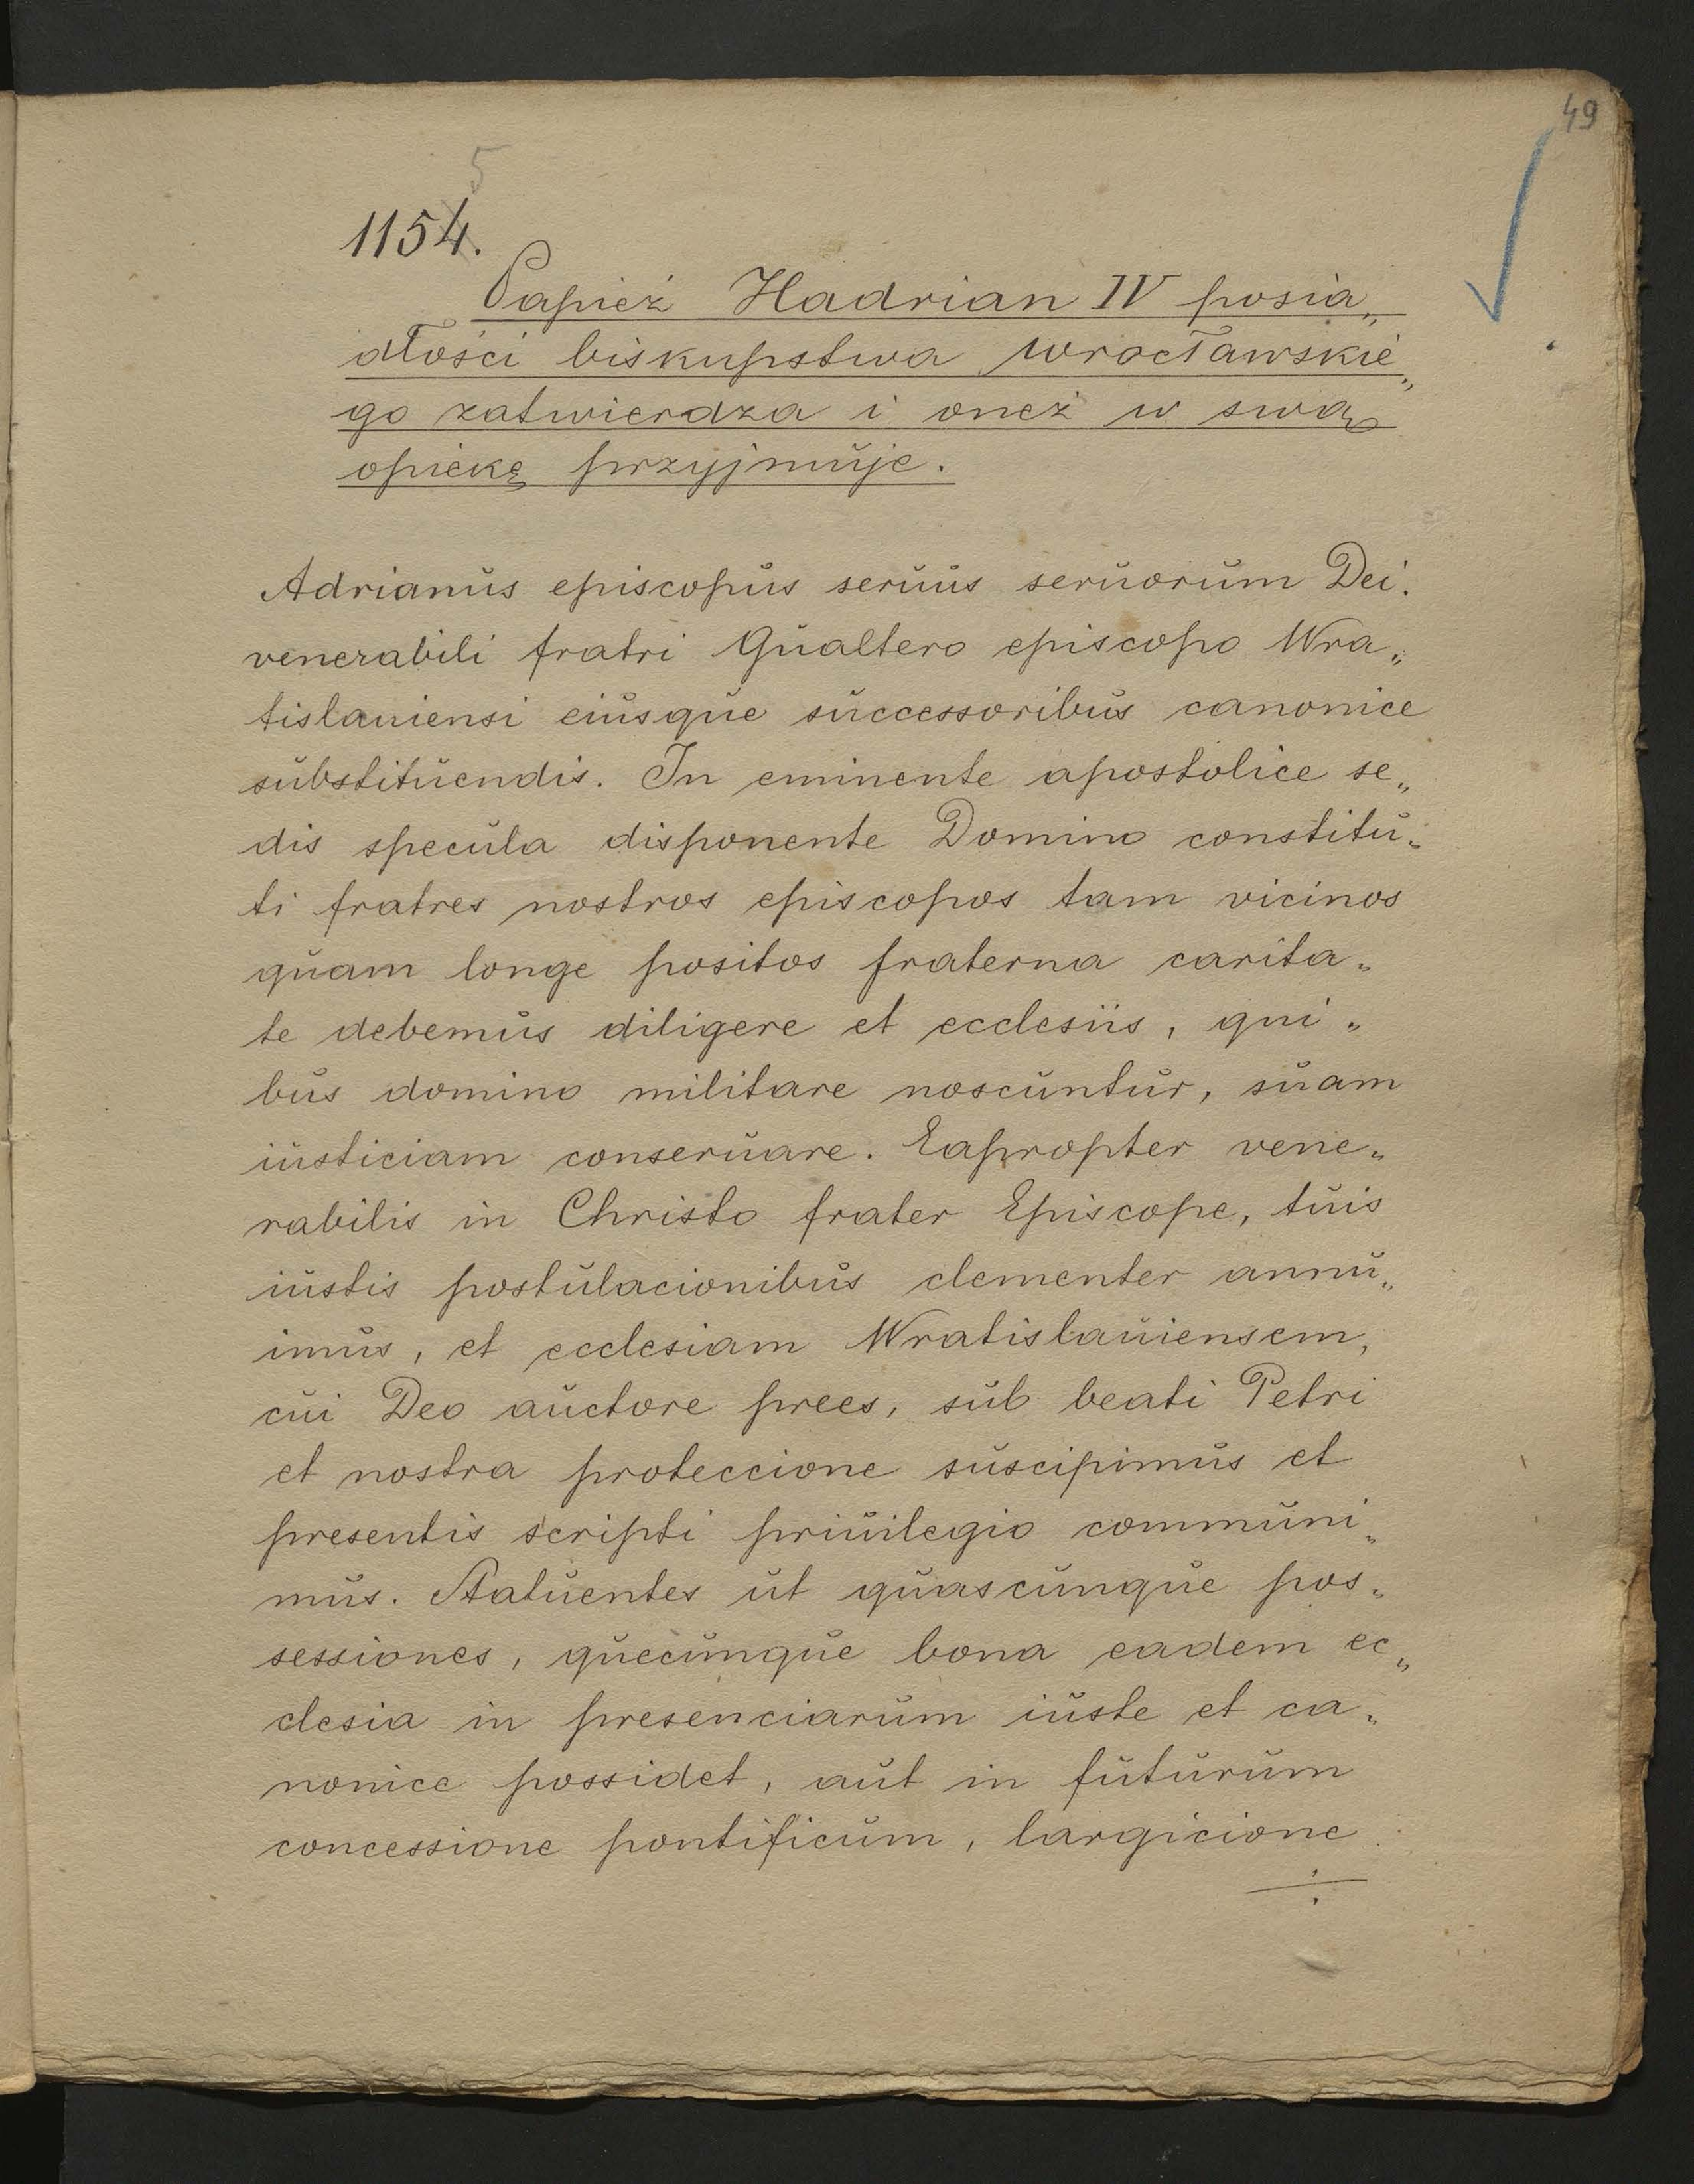 49
5
1154.
Papież Hadrian IV posia„
dłości biskupstwa wrocławskie„
go zatwierdza i oneż w swą
opiekę przyjmuje.
Adrianus episcopus seruus seruorum Dei.
venerabili fratri Gualtero episcopo Wra„
tislauiensi eiusque successoribus canonice
substituendis. In eminente apostolice se„
dis specula disponente Domino constitu„
ti fratres nostros episcopos tam vicinos
quam longe positos fraterna carita„
te debemus diligere et ecclesiis, qui„
bus domino militare noscuntur, suam
iusticiam conseruare. Eapropter vene„
rabilis in Christo frater Episcope, tuis
iustis postulacionibus clementer annu„
imus, et ecclesiam Wratislauiensem,
cui Deo auctore prees, sub beati Petri
et nostra proteccione suscipimus et
presentis scripti priuilegio communi„
mus. Statuentes ut quascunque pos„
sessiones, quecunque bona eadem ec„
clesia in presenciarum iuste et ca„
nonice possidet, aut in futurum
concessione pontificum, largicione